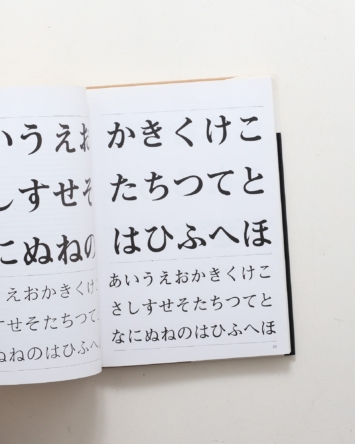 いうえお
しすせそ
にぬねの
えおかきくけ
すせそたちつて
ぬねのはひふへ
かきくけこ
たちつてと
はひふへほ
あいうえおかきくけこ
さしすせそたちつてと
なにぬねのはひふへほ